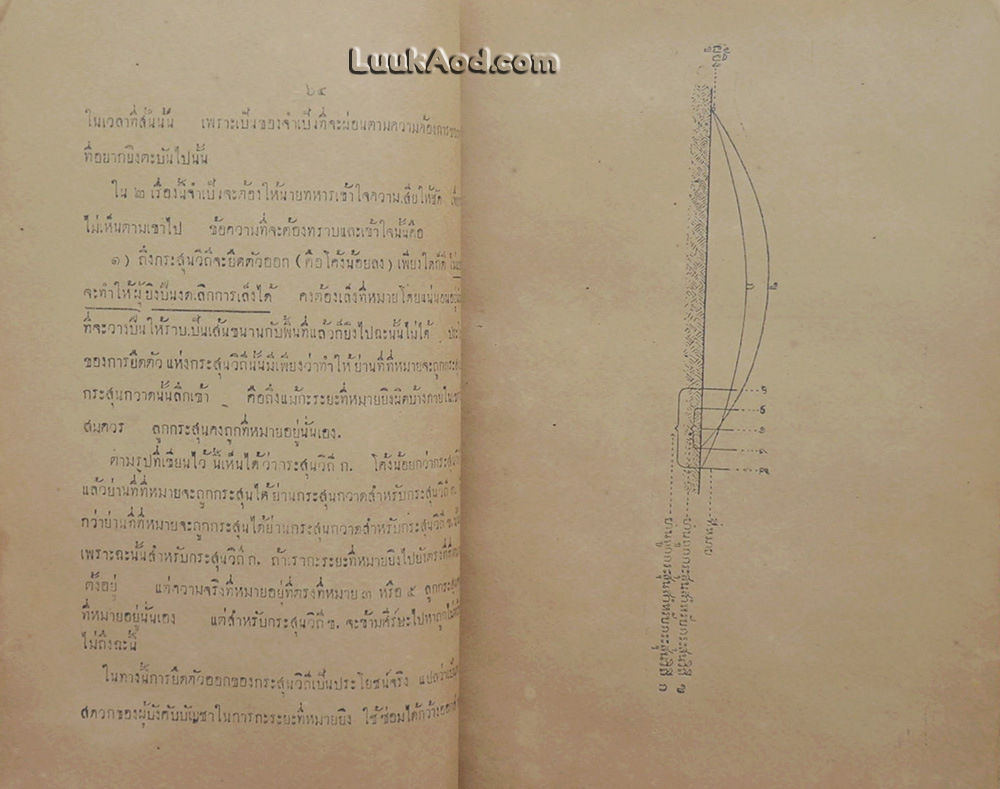 LuukAod.com
๖๔
ในเวลาที่สั้นนั้น เพราะเป็นของจำเป็นที่จะผ่อนตามความต้องการ
ที่อยากยิงตะบันไปนั้น
ใน ๒ เรื่องนี้จำเป็นจะต้องให้นายทหารเข้าใจความเสียให้ชัด
ไม่เห็นตามเขาไป ข้อความที่จะต้องทราบและเข้าใจนั้นคือ
๑) ถึงกระสุนวิถีจะยืดตัวออก (คือโค้งน้อยลง) เพียงใดก็ดี
จะทำให้ผู้ยิงปืนงดเลิกการเล็งได้ คงต้องเล็งที่หมายโดยแน่นอน
ที่จะวางปืนให้ราบเป็นเส้นขนานกับพื้นที่แล้วก็ยิงไปฉะนั้นไม่ได้
ของการยืดตัวแห่งกระสุนวิถีนั้นมีเพียงว่าทำให้ย่านที่ที่หมายจะถูก
กระสุนกวาดนั้นลึกเข้า คือถึงแม้กะระยะที่หมายยิงผิดบ้างภายใน
สมควร ลูกกระสุนคงถูกที่หมายอยู่นั่นเอง.
ตามรูปที่เขียนไว้นี้เห็นได้ว่ากระสุนวิถี ก. โค้งน้อยกว่า
แล้วย่านที่ที่หมายจะถูกกระสุนได้ย่านกระสุนกวาดสำหรับกระสุนวิถี ก.
กว่าย่านที่ที่หมายจะถูกกระสุนได้ย่านกระสุนกวาดสำหรับกระสุนวิถี ข.
เพราะฉะนั้นสำหรับกระสุนวิถี ก. ถ้าเรากะระยะที่หมายยิงไปยังตรงที่
ตั้งอยู่ แต่ความจริงที่หมายอยู่ที่ตรงที่หมาย ๓ หรือ ๕
ที่หมายอยู่นั่นเอง แต่สำหรับกระสุนวิถี ข. จะข้ามศีร์ษะไป
ไม่ถึงฉะนี้
ในทางนี้การยืดตัวออกของกระสุนวิถีเป็นประโยชน์จริง
สดวกของผู้บังคับบัญชาในการกะระยะที่หมายยิง ใช้ซ่อมได้กว้าง
ก
ข
ที่หมาย
ย่านถูกกระสุนสำหรับกระสุนวิถี ข
ย่านถูกกระสุนสำหรับกระสุนวิถี ก